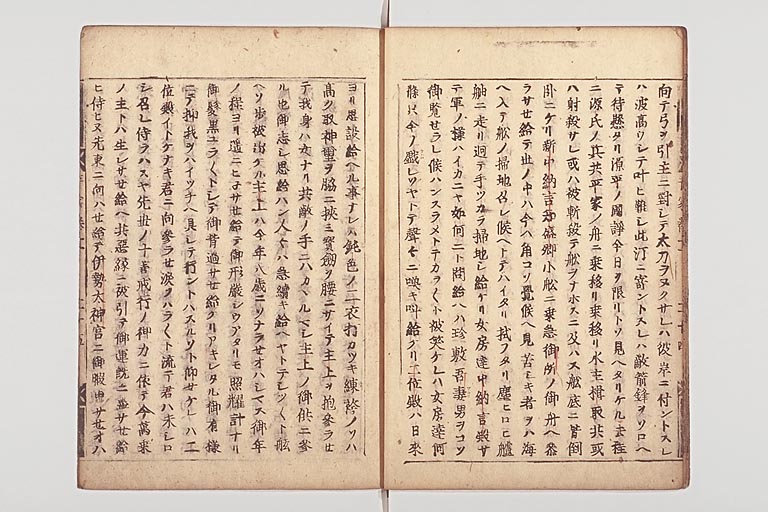 向テ弓ヲ引主ニ對シテ太刀ヲヌクサレハ彼岸ニ付ントスレ
ハ波高クシテ叶ヒ難シ此汀ニ寄ントスレハ敵箭鋒ヲソロヘ
テ待懸タリ源平ノ國諍今日ヲ限リトソ見ヘタリケル去程
ニ源氏ノ兵共平家ノ舟ニ乗移リ乗移リ水主揖取共或
ハ射殺サレ或ハ被斬殺テ舩ヲナホスニ及ハス舩底ニ皆倒
臥ニケリ新中納言知盛卿小舩ニ乗急御所ノ御舟ヘ参
ラサせ給テ世ノ中ハ今ハ角コソ覺候ヘ見苦キ者ヲハ海
ヘ入テ舩ノ掃地召レ候ヘトテハイタリ拭フタリ塵ヒロヒ艫
舳ニ走リ廻テ手ツカラ掃地シ給ケリ女房達中納言殿サ
テ軍ノ様ハイカニヤ如何ニト問給ヘハ珍敷吾妻男ヲコソ
御覧せラレ候ハンスラメトテカラ〱ト被笑ケレハ女房達何
條只今ノ戯レソヤトテ聲〻ニ喚キ叫給ケリ二位殿ハ日来
ヨリ思設給ヘル事ナレハ鈍色ノ二衣打カツキ練袴ノソハ
高ク取神璽ヲ脇ニ挟ミ寳劔ヲ腰ニサイテ主上ヲ抱参ラせ
テ我身ハ女ナリ共敵ノ手ニハカヽルマシ主上ノ御供ニ参
ル也御志シ思給ハン人〻ハ急續キ給ヘヤトテシツ〱ト舷
ヘソ歩被出ケル主上ハ今年八歳ニソナラせオハシマス御年
ノ程ヨリ遥ニヒヨサせ給テ御形厳シウアタリモ照耀計ナリ
御髪黒ユラ〱トシテ御背過サせ給ケリアキレタル御有様
ニテ抑我ヲハイツチヘ具シテ行ントハスルソト仰せケレハ二
位殿イトケナキ君ニ向参ラせ涙ヲハラ〱ト流テ君ハ未シロ
シ召レ侍ラハスヤ先世ノ十善戒行ノ御力ニ依テ今萬乗
ノ主トハ生レサせ給ヘ共悪縁ニ被引テ御運既ニ盡サせ給
ヒ侍ヒヌ先東ニ向ハせ給テ伊勢太神宮ニ御暇申サせオハ